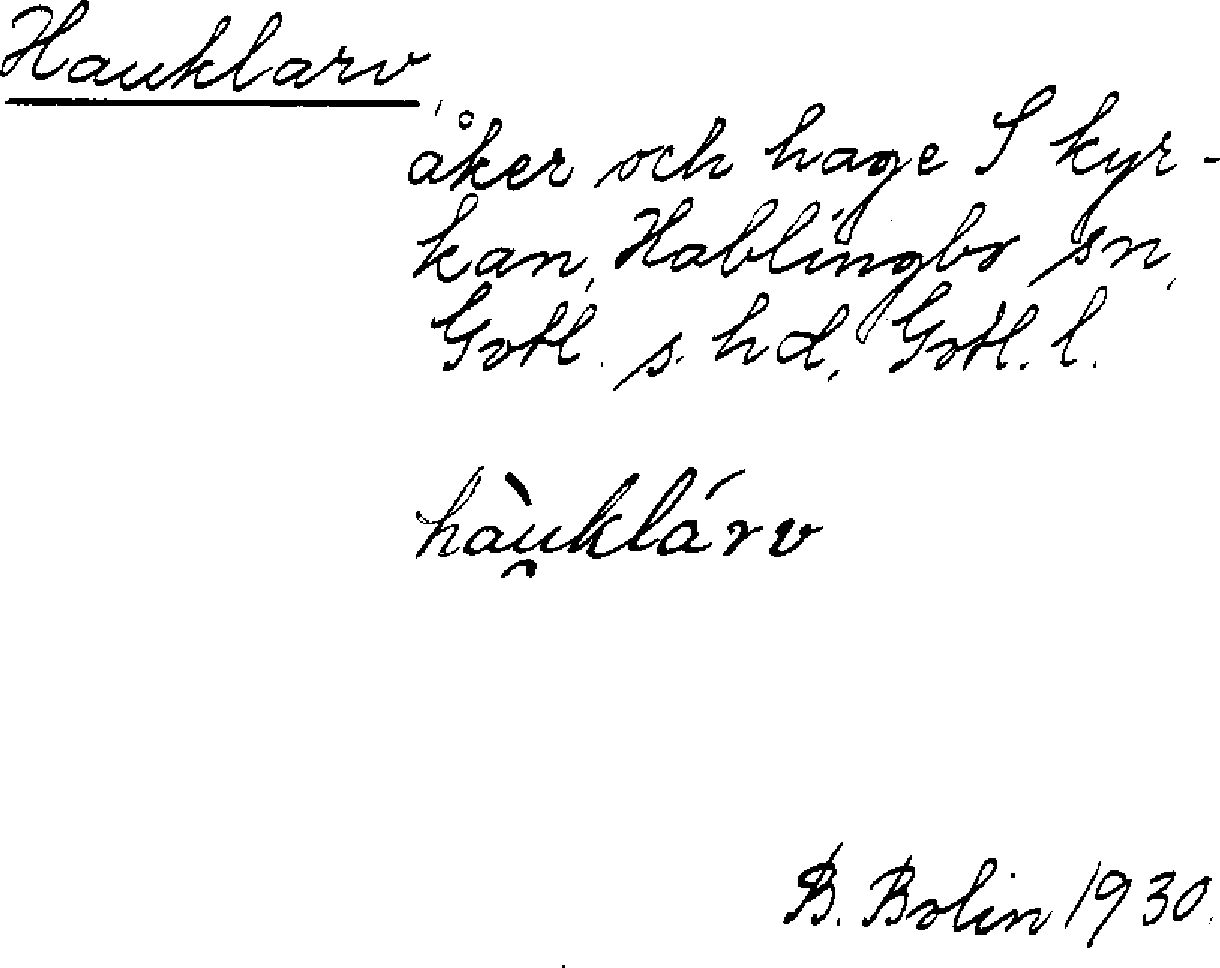 Hauklarv,
åker och hage S kyr-
kan, Hablingbo sn,
Gotl. s. hd, Gotl. l.
hàu̯klárv
B. Bolin 1930.